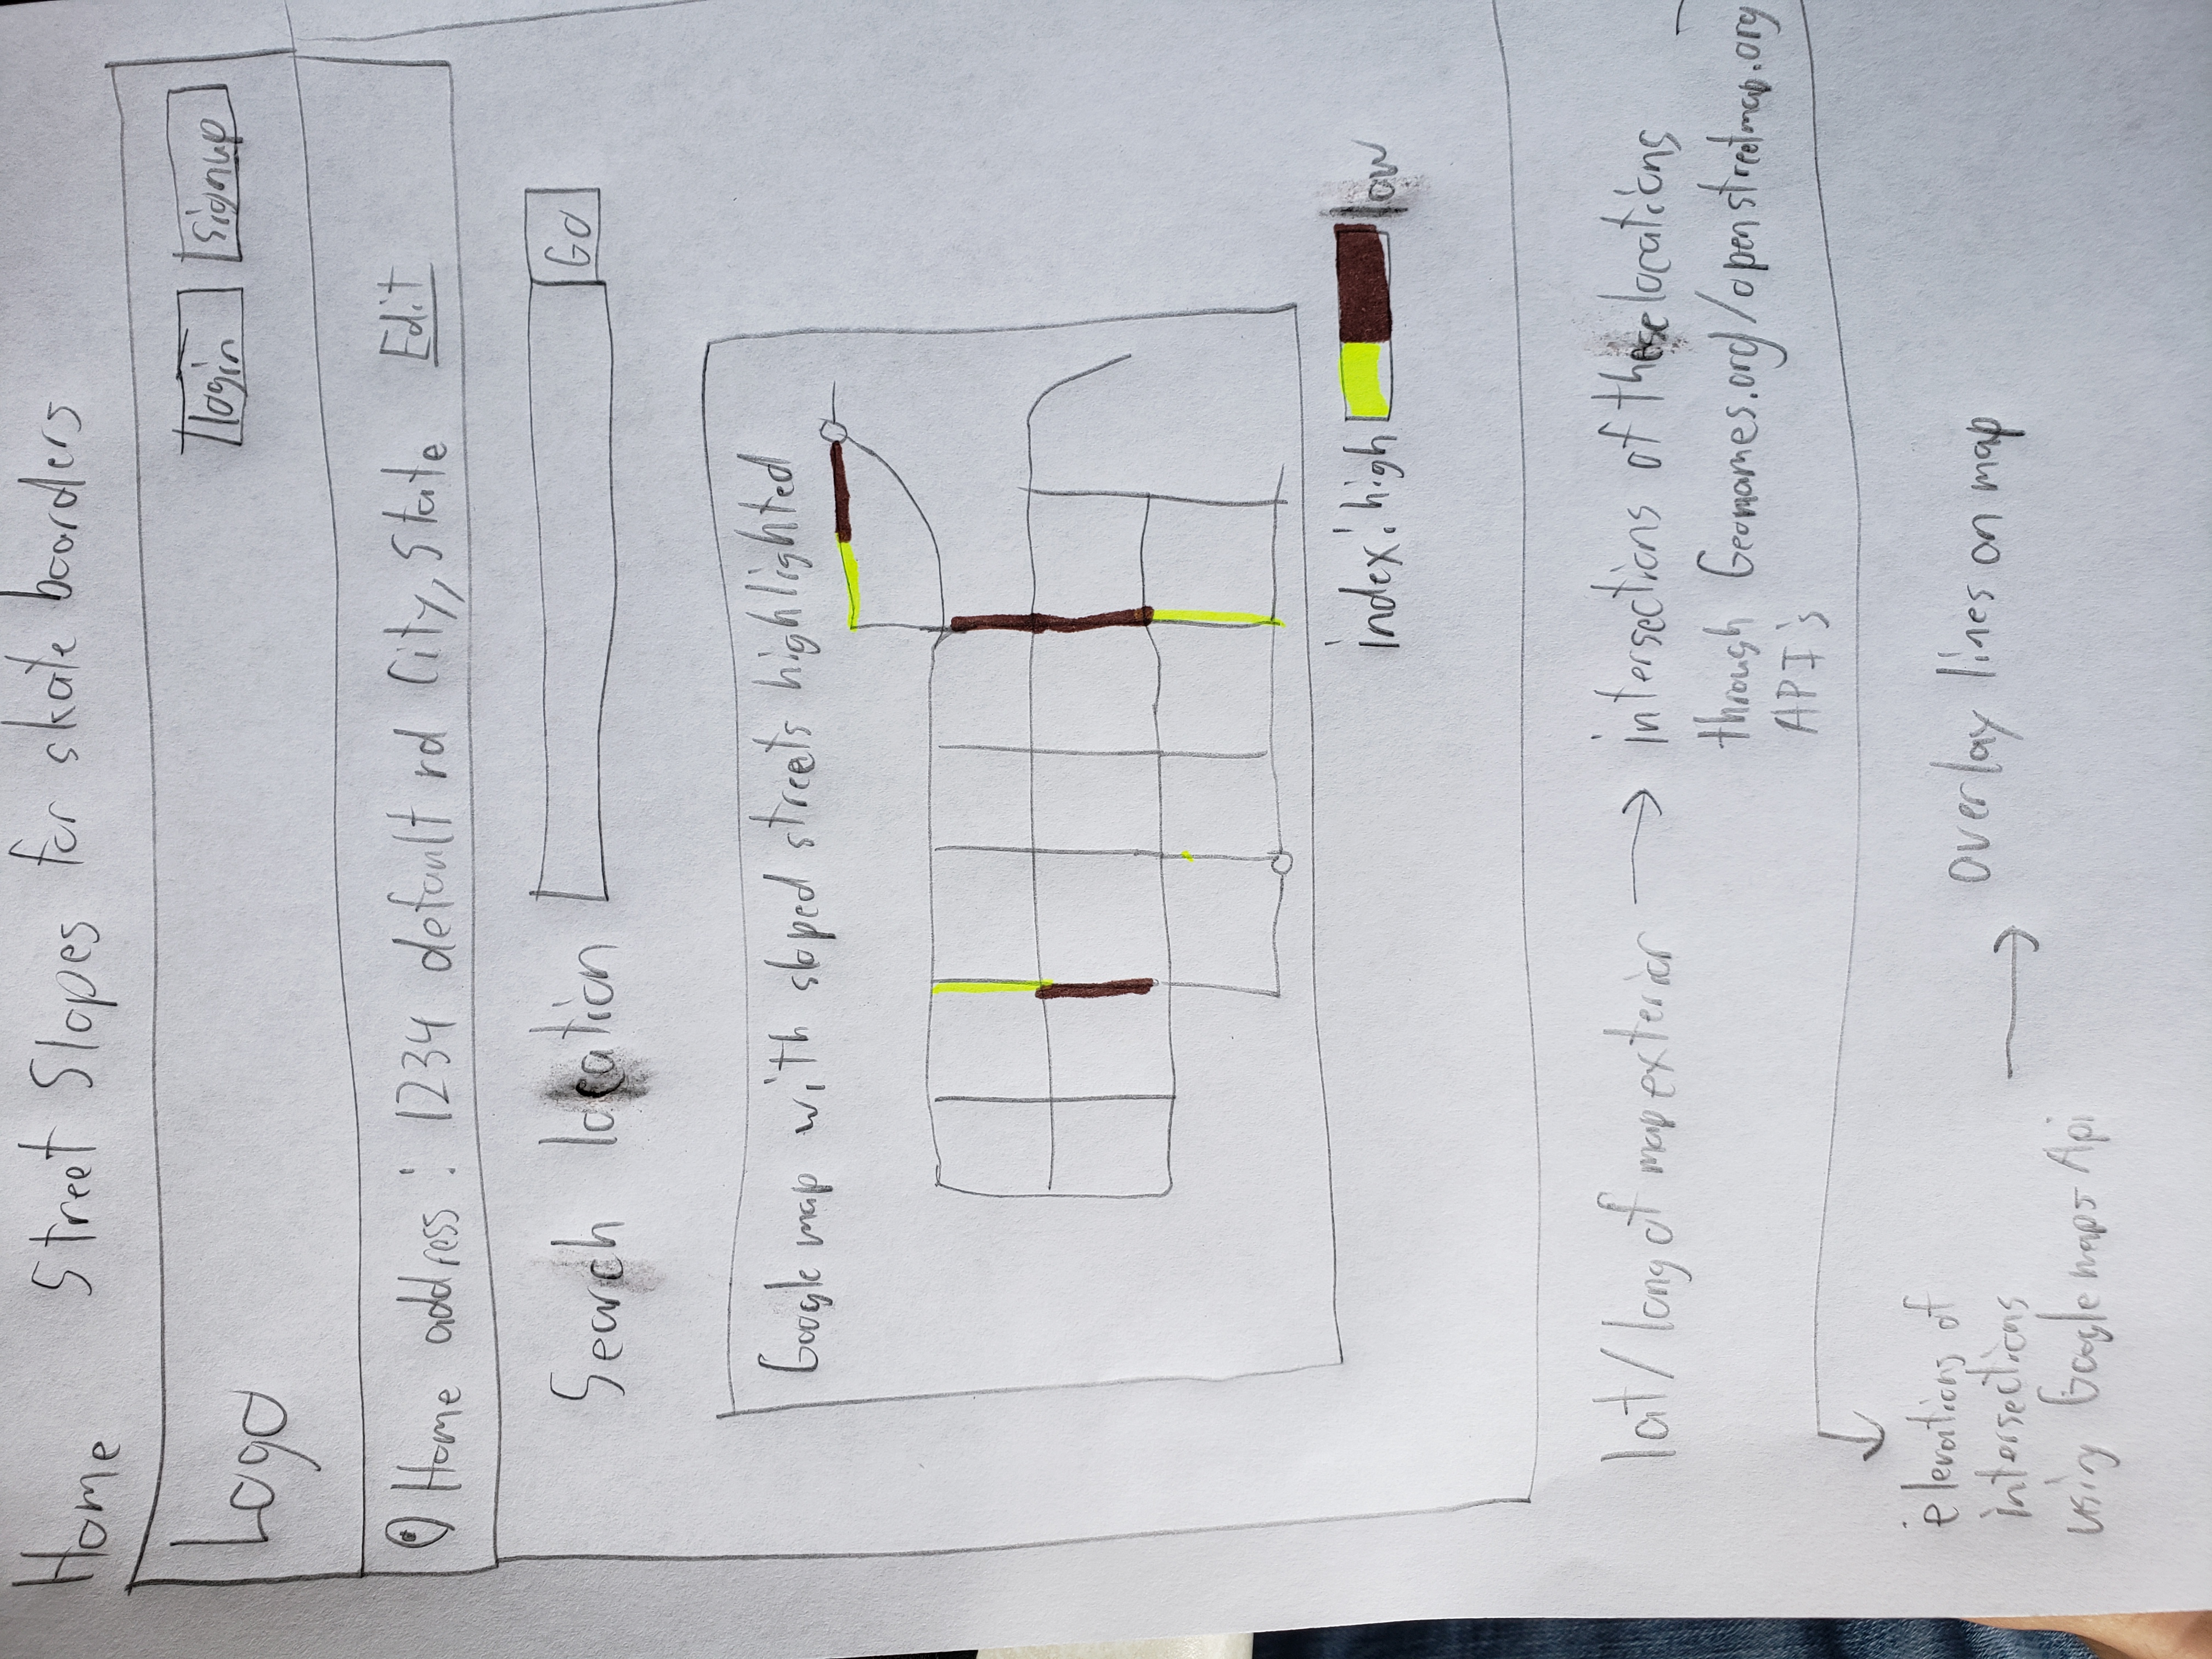 Home Street Slopes for skate boarders
Logo
login
Signup
Home address: 1234 default rd City, State Edit
Search location
Go
Google map with sloped streets highlighted
index: high
low
lat/long of map exterior → intersections of these locations
through Geonames.org/openstreetmap.org
API's
elevations of
intersections
using Google maps Api
→ overlay lines on map